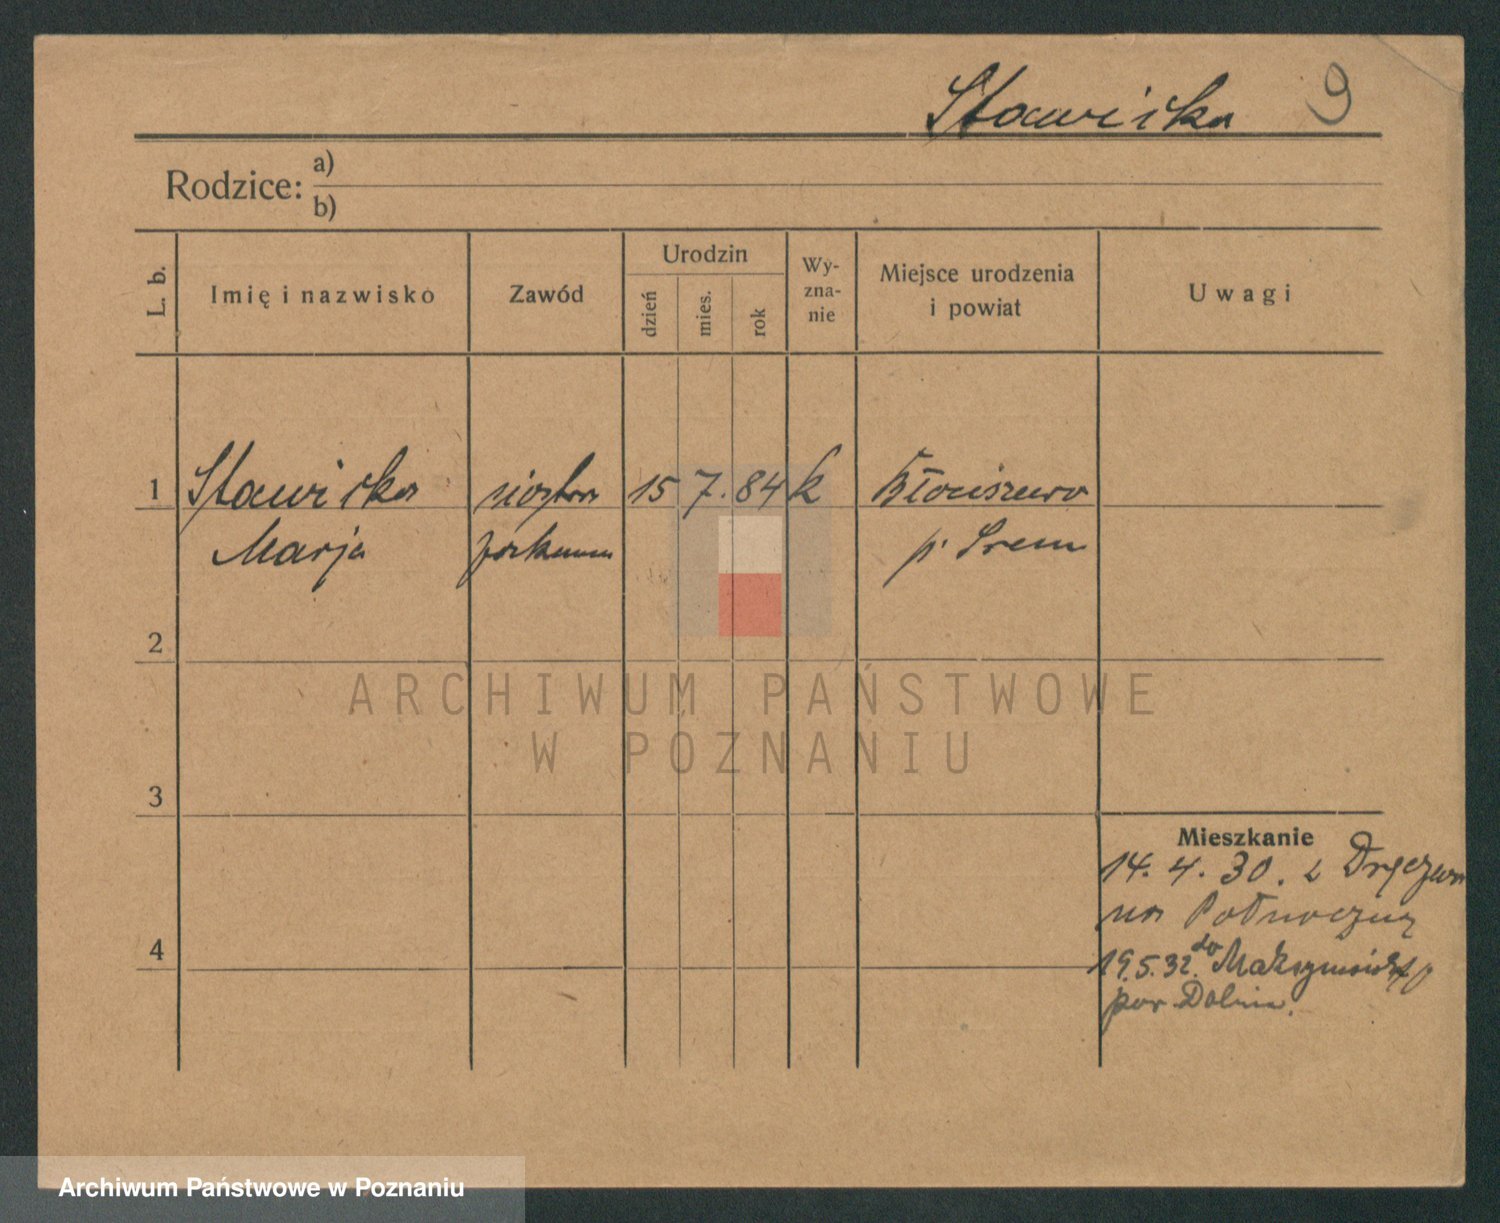 Stawicka 9
Rodzice: a)
b)
L. b.
Imię i nazwisko
Zawód
Urodzin
dzień
mies.
rok
Wy-
zna-
nie
Miejsce urodzenia
i powiat
Uwagi
1 Stawicka siostra 15 7. 84 k Błociszewo
Marja p. Śrem
2
ARCHIWUM PAŃSTWOWE
W POZNANIU
3
Mieszkanie
14. 4. 30. z
na Północną
4
19.5.32. do
pow Dolina.
Archiwum Państwowe w Poznaniu